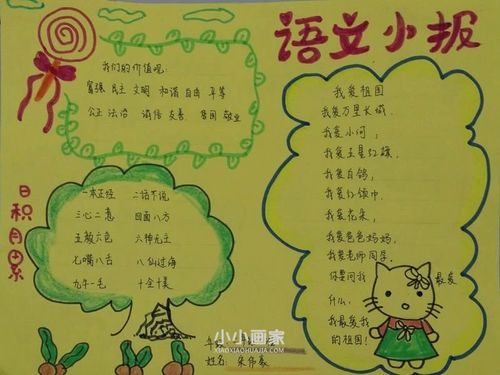 语文小报
我们的价值观:
富强 民主 文明 和谐 自由 平等
公正 法治 诚信 友善 爱国 敬业
日积月累
一本正经 二话不说
三心二意 四面八方
五颜六色 六神无主
七嘴八舌 八仙过海
九牛一毛 十全十美
我爱祖国
我爱万里长城,
我爱小河,
我爱五星红旗,
我爱白鸽,
我爱红领巾,
我爱花朵,
我爱爸爸妈妈,
我爱老师同学。
你要问我 最爱
什么,
我最爱我
的祖国!
小小画家
XIAOXIAOHUAJIA.COM
姓名: